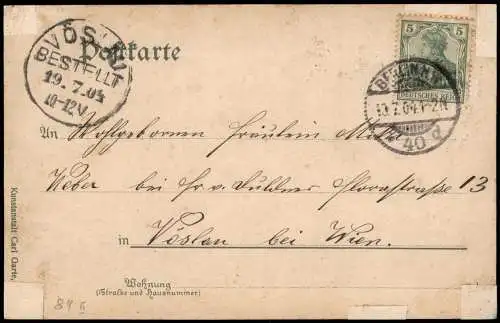 VÖSLAU
BESTELLT
19.7.04
10-12V
Postkarte
5
DEUTSCHES REICH
BERLIN
7.04.1-2N
40 d
An Wohlgebornen Fräulein
Weber bei Fr. v. Florastraße 13
in Vöslau bei Wien.
Wohnung
(Straße und Hausnummer)
Kunstanstalt Carl Garte,